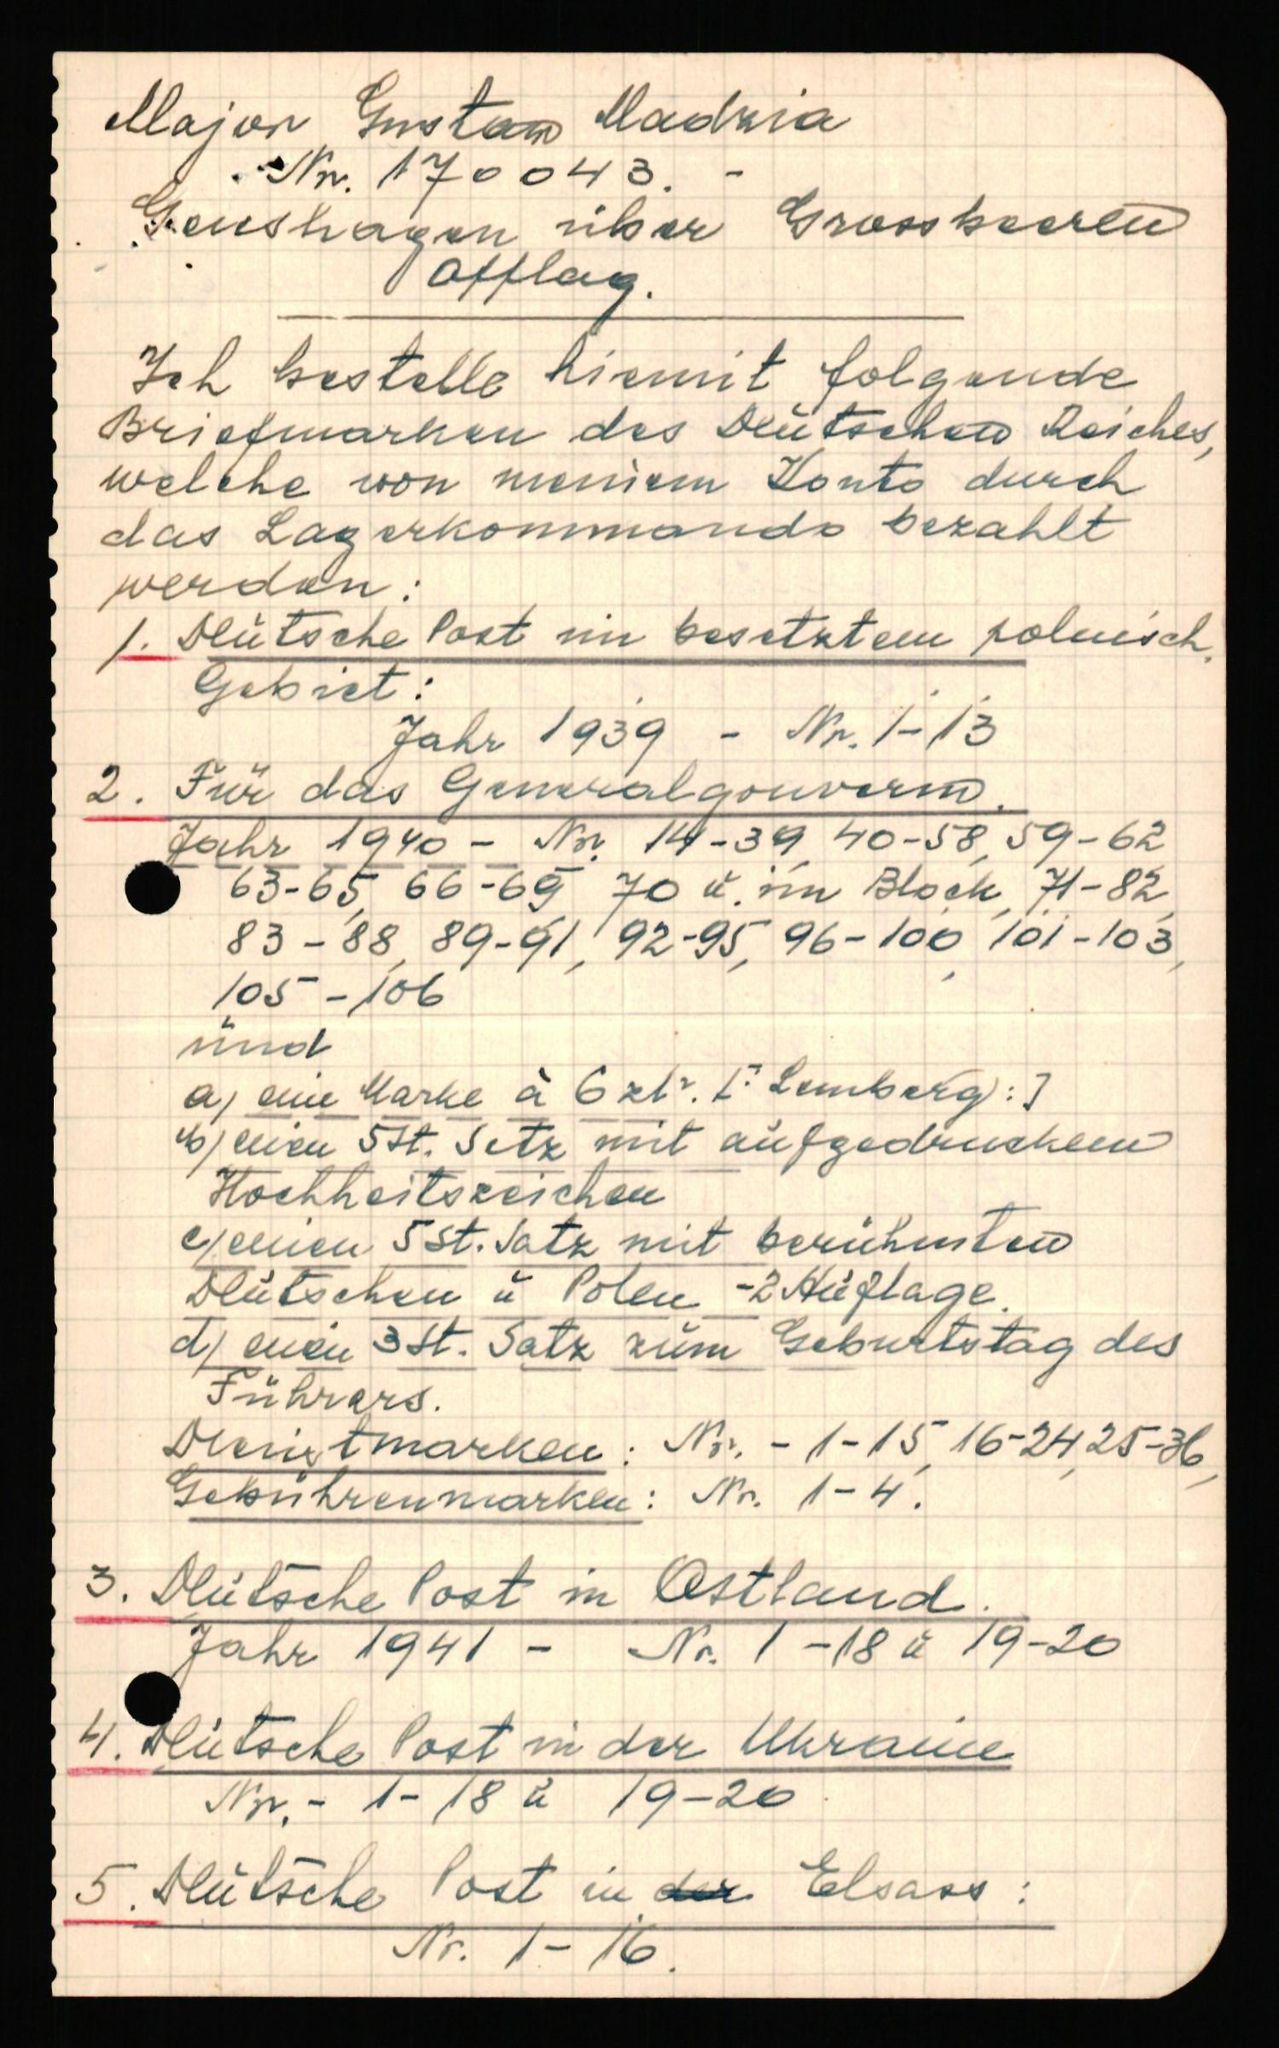 Major Gustaw Madzia
Nr. 170043. -
Genshagen über Grossbeeren
Offlag.
Ich bestelle hiemit folgende
Briefmarken des Deütschen Reiches,
welche von meniem Konto durch
das Lagerkommando bezahlt
werden:
1. Deütsche Post im besetztem polnisch.
Gebiet:
Jahr 1939 - Nr. 1-13
2. Für das Generalgouvern.
Jahr 1940 - Nr. 14-39, 40-58, 59-62
63-65, 66-69 70 ü. im Block, 71-82,
83-88, 89-91, 92-95, 96-100, 101-103,
105-106
ünd
a) eine Marke à 6 zł. [: Lemberg :]
b) einen 5 St. Setz mit aüfgedruckem
Hochheitszeichen
c) einen 5 St. Satz mit berühmten
Deütschen ü Polen - 2 Aüflage.
d) einen 3 St. Satz züm Geburtstag des
Führers.
Dienstmarken: Nr. - 1-15, 16-24, 25-36,
Gebührenmarken: Nr. 1-4.
3. Deütsche Post in Ostland.
Jahr 1941 - Nr. 1-18 ü 19-20
4. Deütsche Post in der Ukraine
Nr. - 1-18 ü 19-20
5. Deütsche Post in der Elsass:
Nr. 1-16.